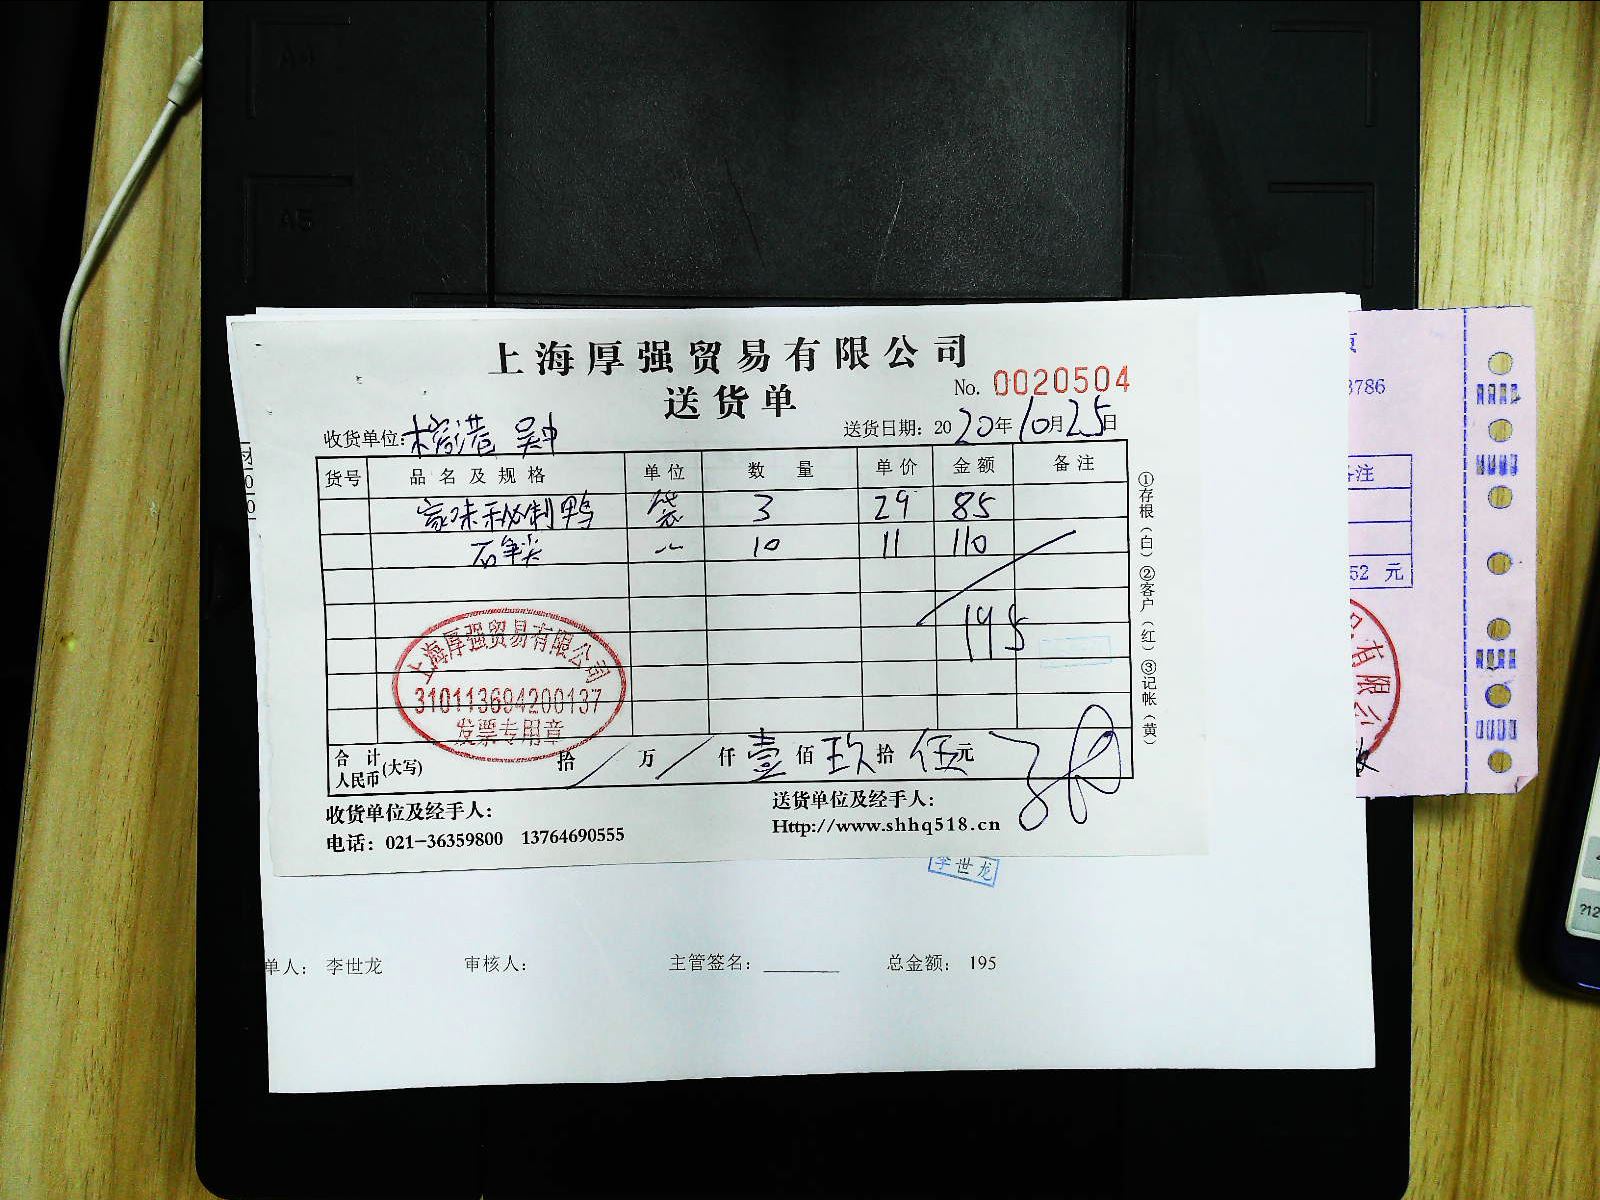 A4
A5
上海厚强贸易有限公司
送货单
No. 0020504
收货单位:
送货日期: 2020年10月25日
货号 品名及规格 单位 数量 单价 金额 备注
秘制鸭 袋 3 29 85
石笋尖 〃 10 11 110
195
上海厚强贸易有限公司
310113694200137
发票专用章
合计人民币(大写) 拾 万 仟 壹 佰 玖 拾 伍 元
收货单位及经手人:
送货单位及经手人:
电话: 021-36359800 13764690555
Http://www.shhq518.cn
①存根(白) ②客户(红) ③记帐(黄)
李世龙
单人: 李世龙 审核人: 主管签名: 总金额: 195
3786
备注
52 元
有限公
?12